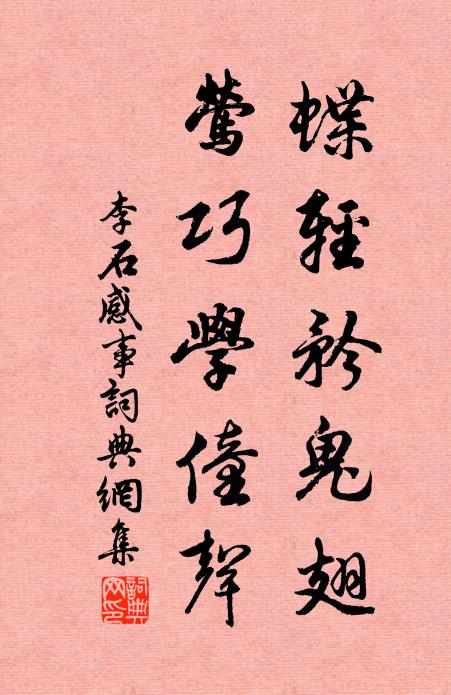 蝶輕矜鬼翅
鶯巧學僮聲
李石感事詞典網集
詞典網印